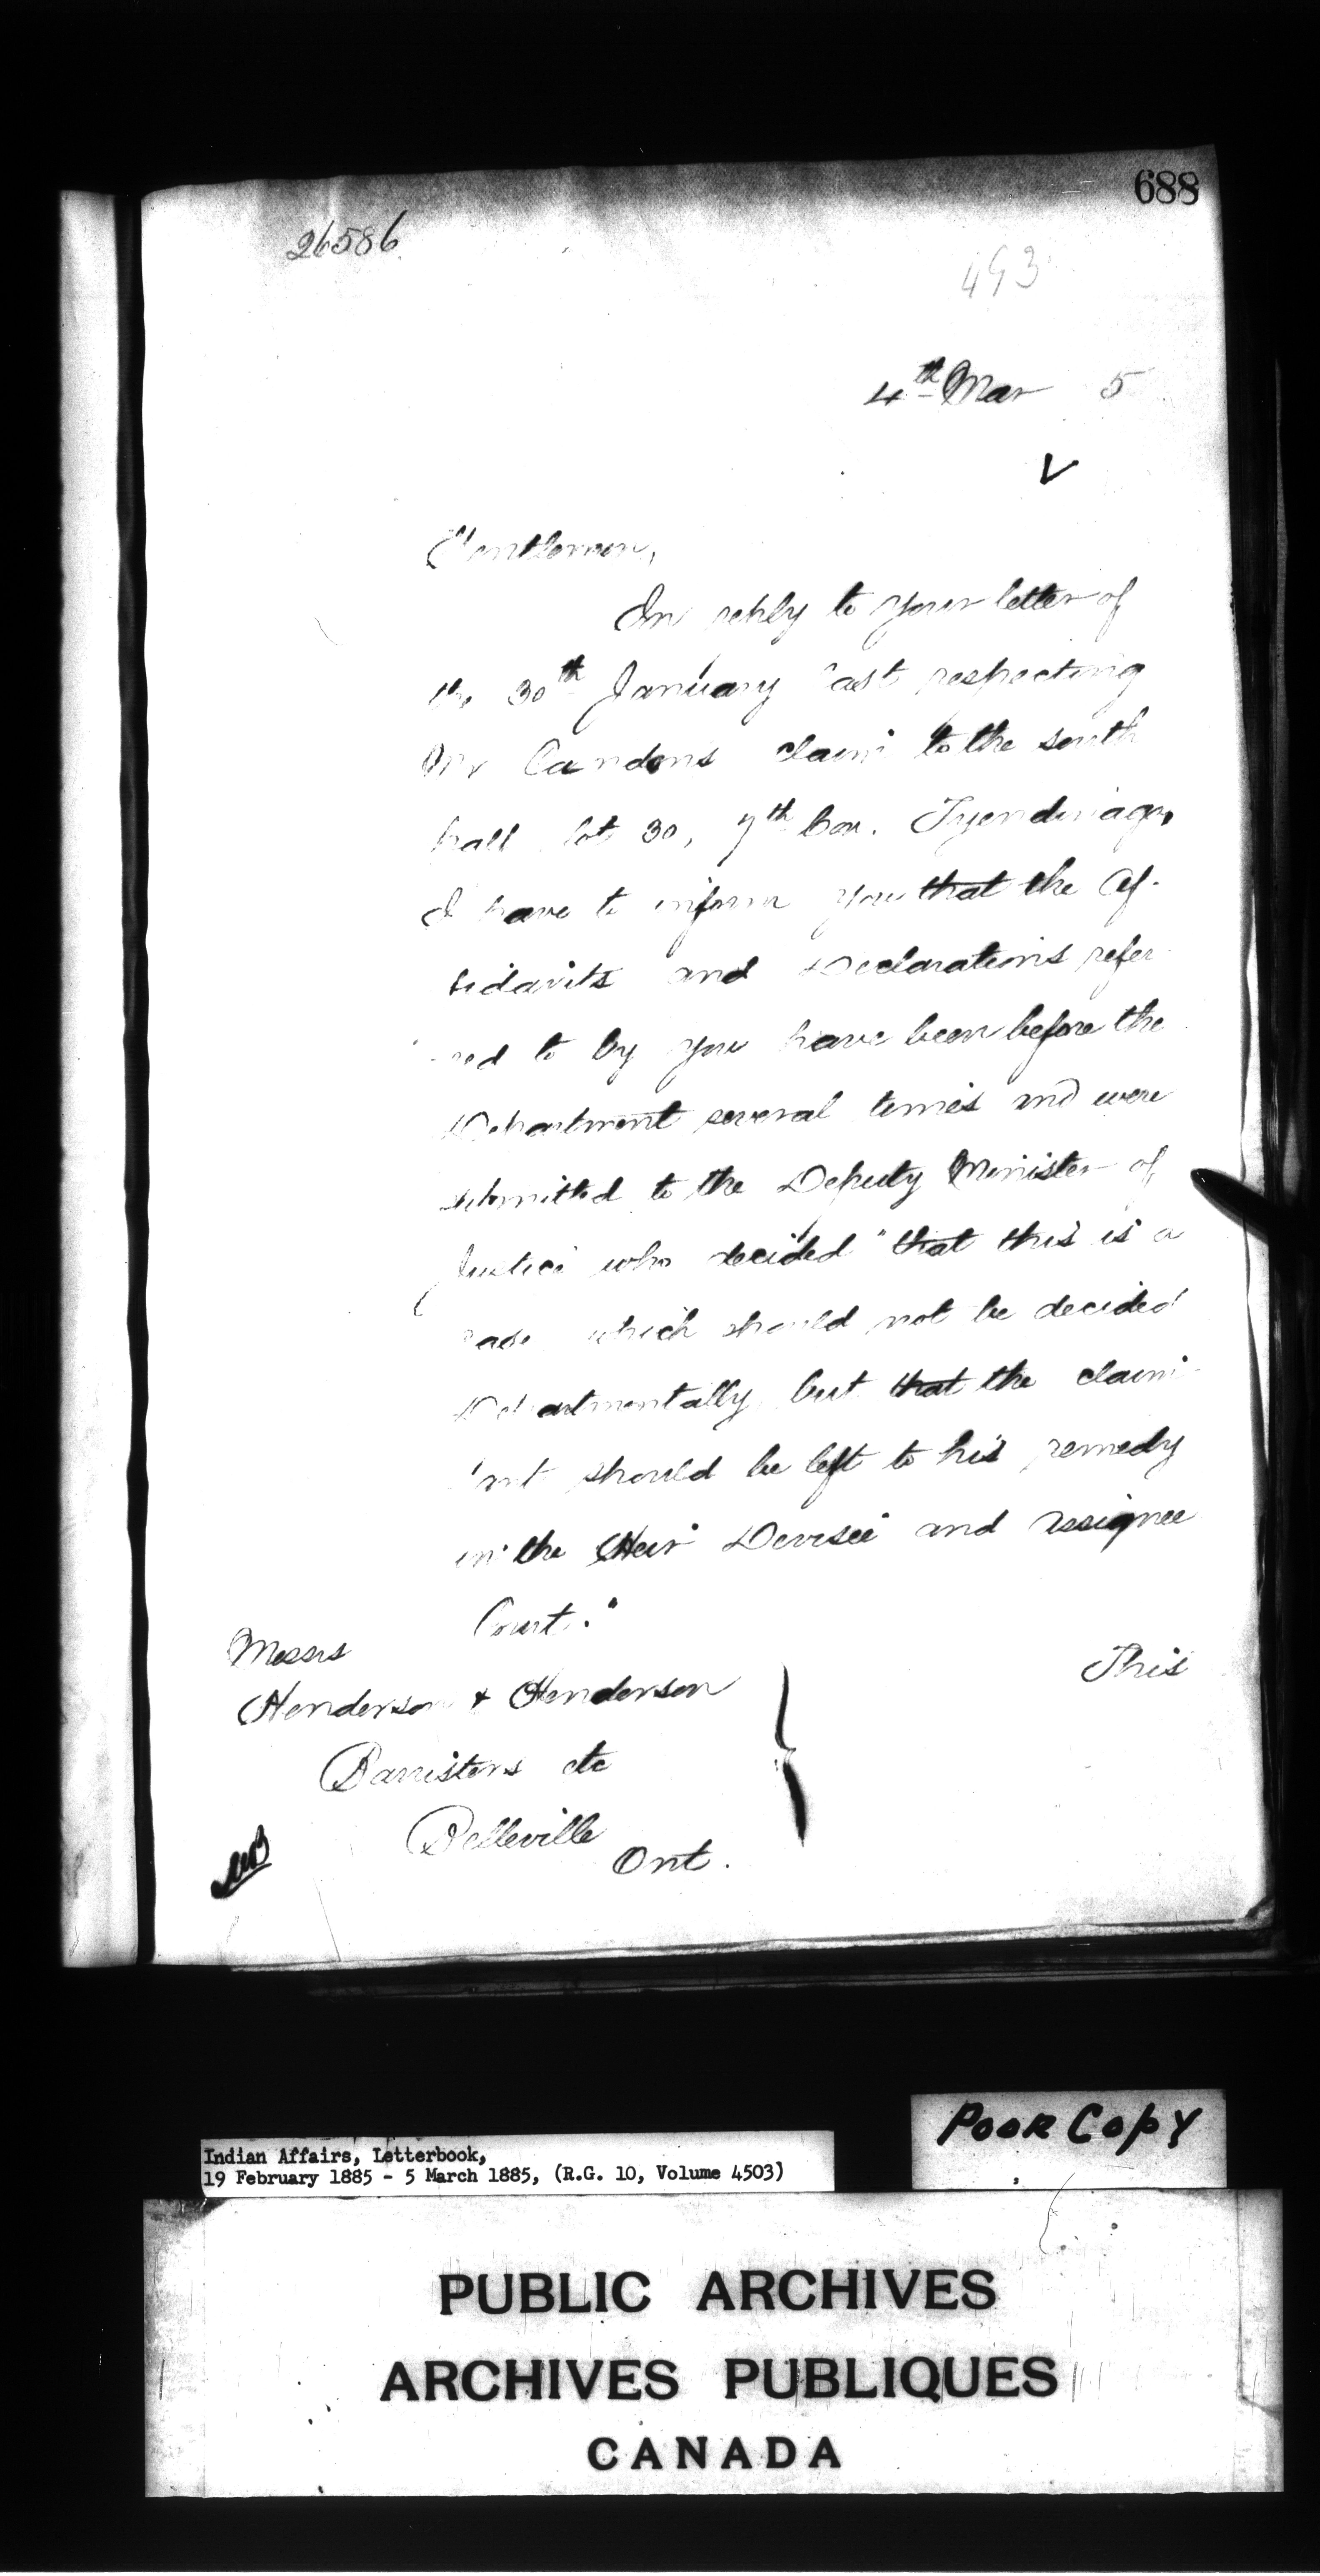 688
26586
493
4th Mar 5
Gentlemen,
In reply to your letter of
the 30th January last respecting
Mr Candons claim to the south
half lot 30, 7th Con. Tyendinaga,
I have to inform you that the Af-
fidavits and Declarations refer-
red to by you have been before the
Department several times and were
submitted to the Deputy Minister of
Justice who decided "that this is a
case which should not be decided
Departmentally but that the claim-
ant should be left to his remedy
in the Heir Devisee and assignee
Court."
This
Messrs
Henderson & Henderson
Barristers etc
Belleville
Ont.
Poor Copy
Indian Affairs, Letterbook,
19 February 1885 - 5 March 1885, (R.G. 10, Volume 4503)
PUBLIC ARCHIVES
ARCHIVES PUBLIQUES
CANADA